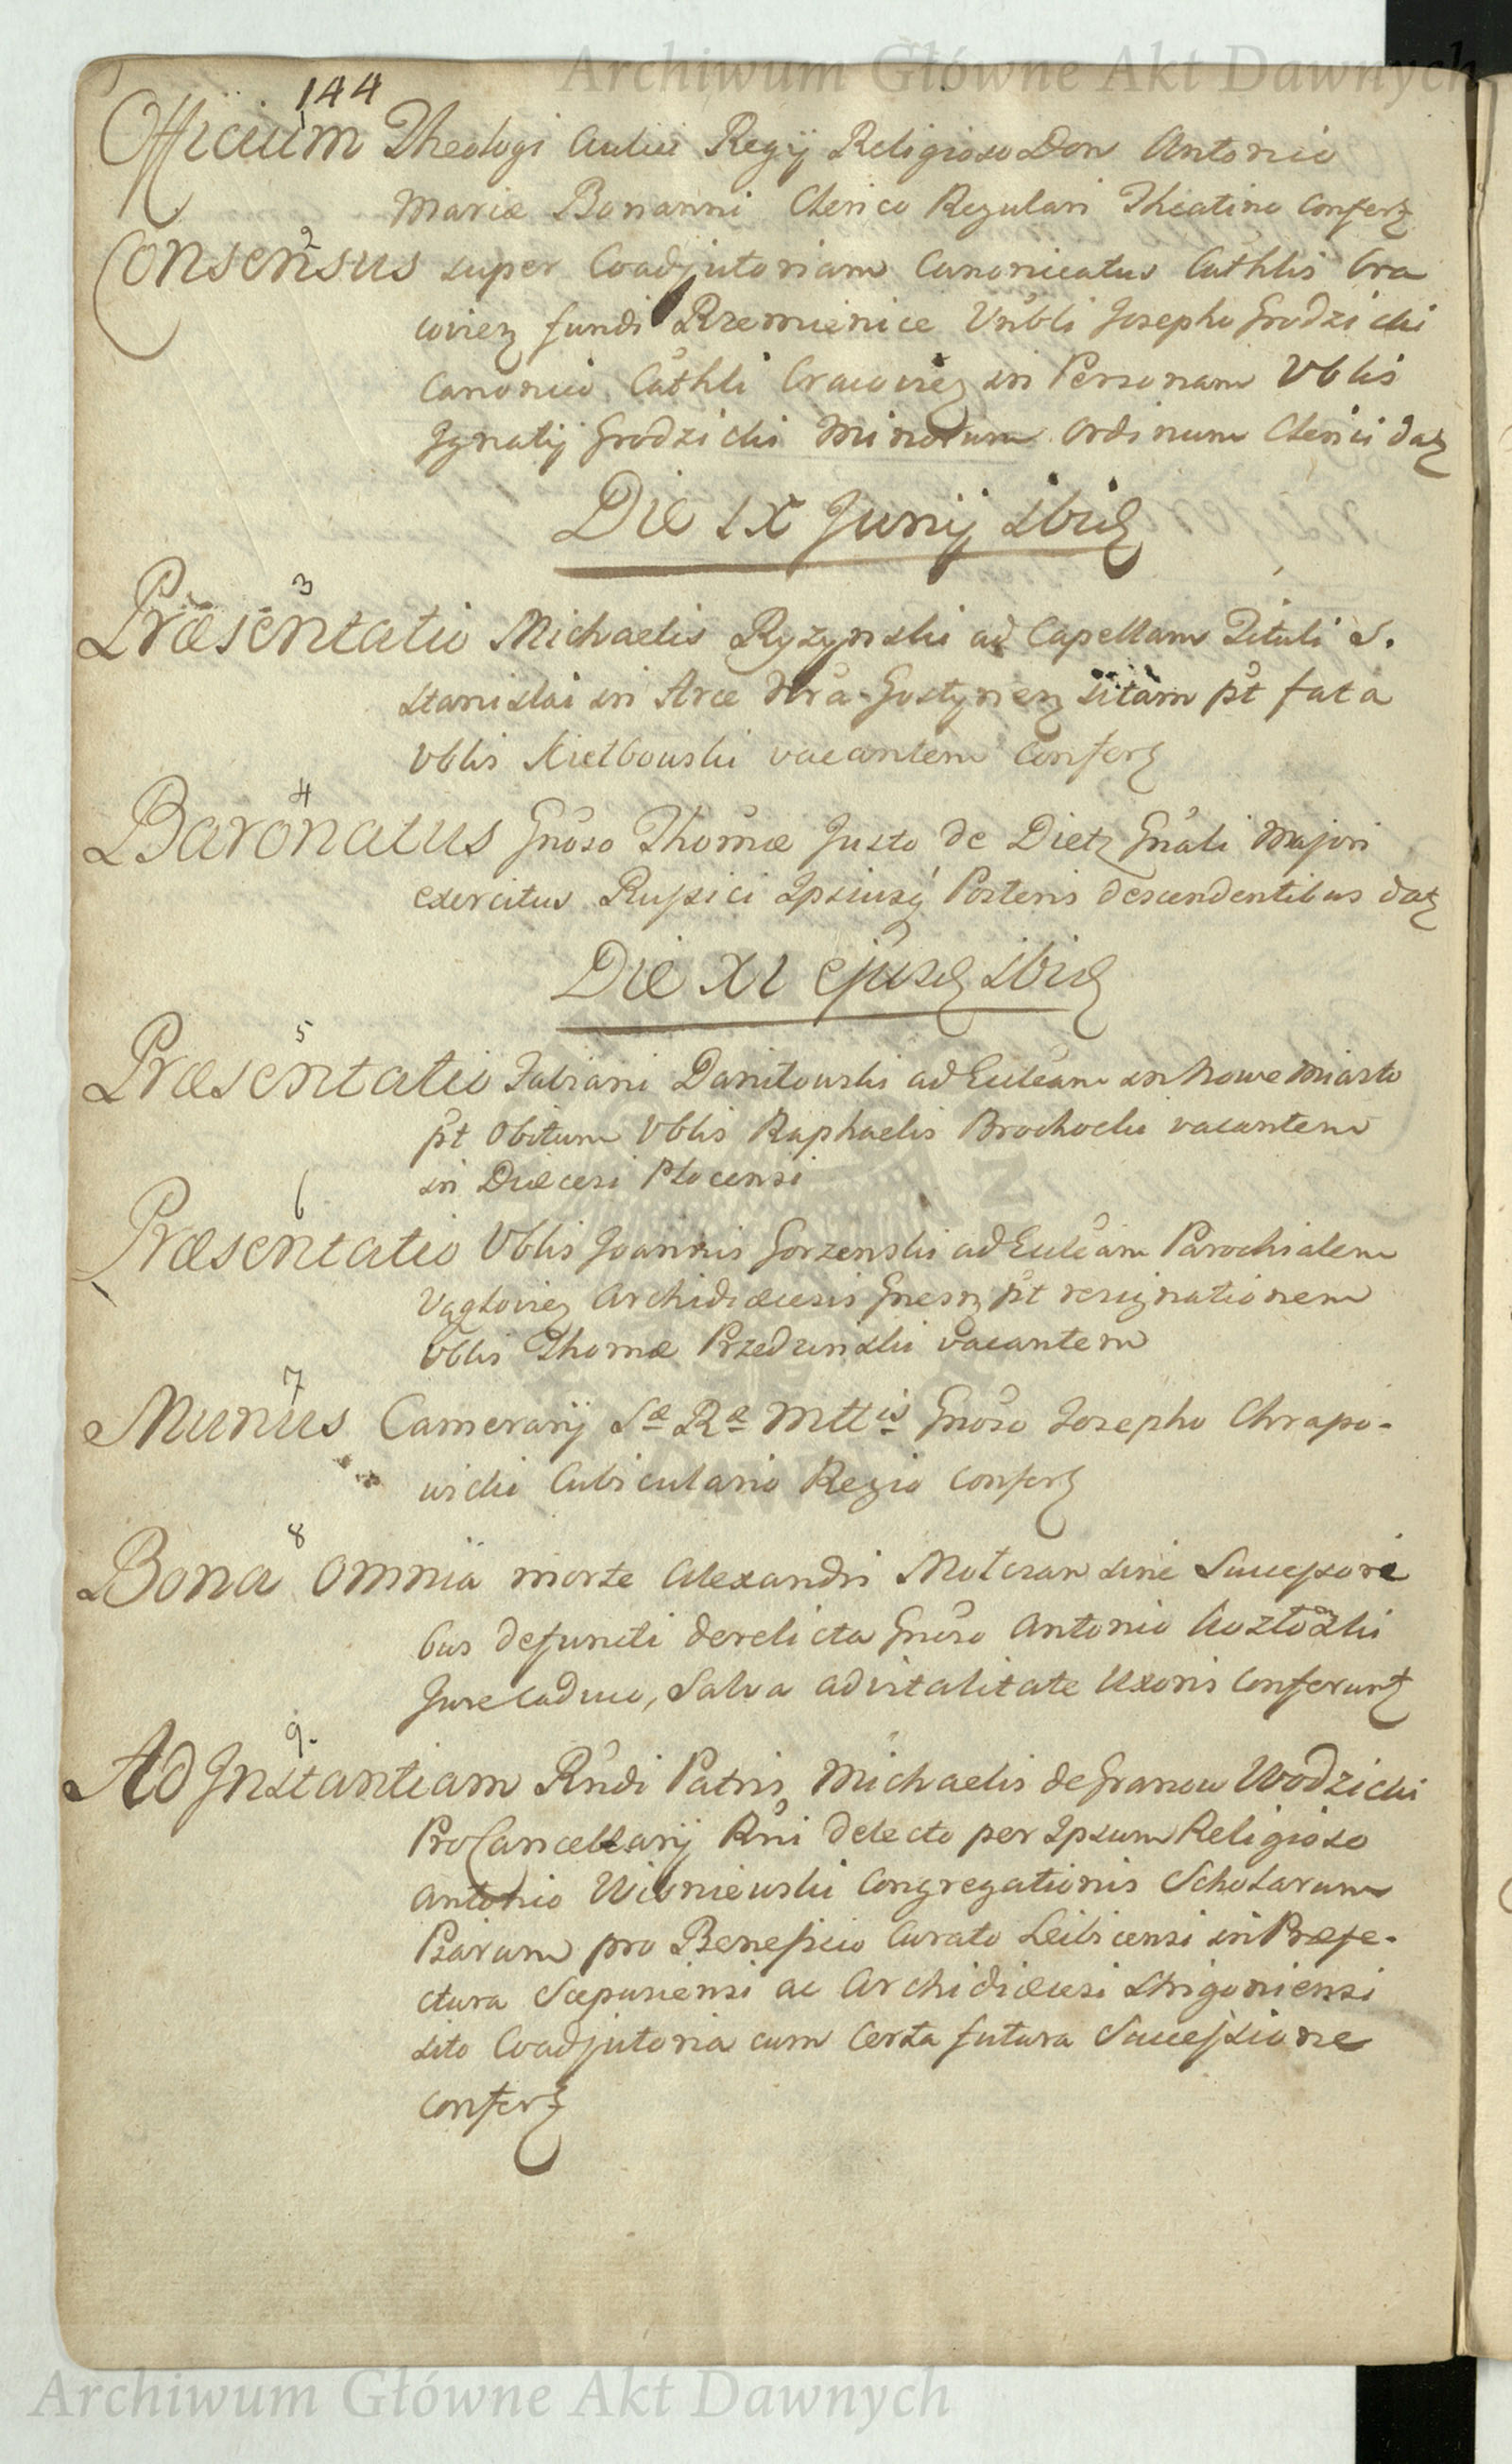 Archiwum Główne Akt Dawnych
144
Officium Theologi Aulici Regij Religioso Don Antonio
Mariæ Bonanni Clerico Regulari Theatino Confertz
2
Consensus super Coadjutoriam Canonicatus Cathlis Cra
covien fundi Rzemienice Vnbli Josepho Grodzicki
Canonico Cathli Cracovien in Personam Vblis
Ignatij Grodzicki Minorum Ordinum Clerici datz
Die IX Junij ibid
3
Præsentatio Michaelis Ryzynski ad Capellam Tituli S.
Stanislai in Arce Nra Gostynien sitam pt fata
Vblis Kiełbowski vacantem Confertz
4
Baronatus Gnoso Thomæ Justo de Dietz Gnali Majori
exercitus Russici Ipsiusq Posteris descendentibus datz
Die XI ejusd ibid
5
Præsentatio Fabiani Daniłowski ad Eccleam in Nowe Miasto
pt obitum Vblis Raphaelis Brochocki vacantem
in Diæcesi Plocensi
6
Præsentatio Vblis Joannis Gorzenski ad Eccleam Parochialem
Archidiæcesis Gnesn pt resignationem
Vblis Thomæ Przedzinski vacantem
7
Munus Camerarij Sæ Ræ Mttis Gnoso Josepho Chrapo-
wicki Cubiculario Regio Confertz
8
Bona omnia morte Alexandri Motczan sine Successori
bus defuncti derelicta Gnoso Antonio Kozłoski
Jure Caduco, Salva advitalitate Uxoris Conferuntz
9.
Ad Instantiam Rndi Patris Michaelis de Granow Wodzicki
ProCancellarij Rni delecto per Ipsum Religioso
Antonio Wisniewski Congregationis Scholarum
Piarum pro Beneficio Curato Leibicensi in Præfe-
ctura Scepusiensi ac Archidiæcesi Strigoniensi
sito Coadjutoria cum Certa futura Successione
Confertz
Archiwum Główne Akt Dawnych